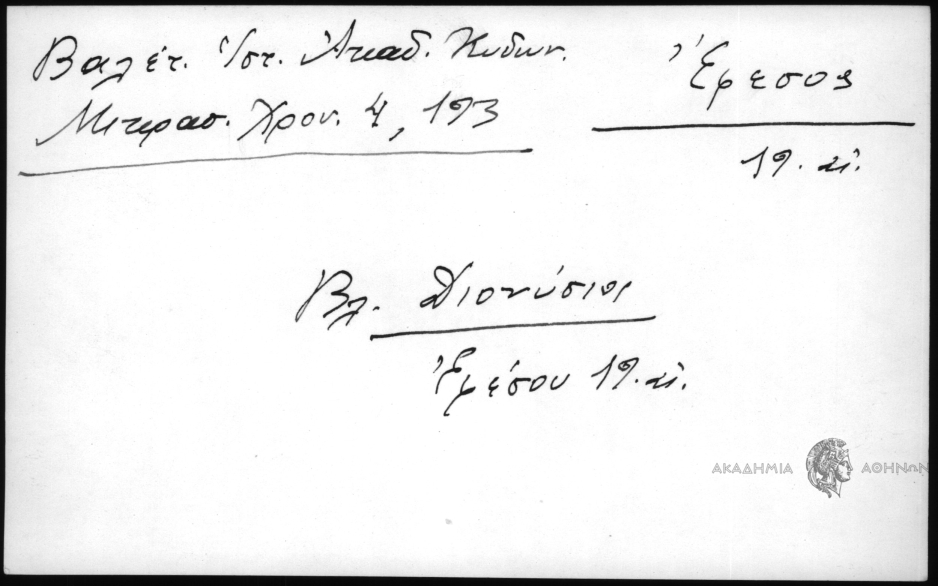 Βαλέτ. Ἱστ. Ἀκαδ. Κυδων.
Μικρασ. Χρον. 4, 193
Ἔφεσος
19. αἰ.
Βλ. Διονύσιος
Ἐφέσου 19. αἰ.
ΑΚΑΔΗΜΙΑ ΑΘΗΝΩΝ